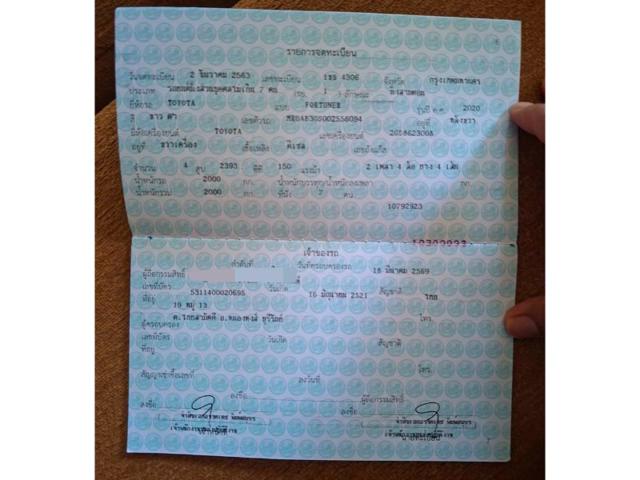 รายการจดทะเบียน
วันจดทะเบียน 2 ธันวาคม 2563 เลขทะเบียน 4306 จังหวัด กรุงเทพมหานคร
ประเภท รถยนต์นั่งส่วนบุคคลไม่เกิน 7 คน (รย. 1 ) ลักษณะ
ยี่ห้อรถ TOYOTA แบบ FORTUNER รุ่นปี ค.ศ. 2020
สี ขาว ดำ เลขตัวรถ อยู่ที่
ยี่ห้อเครื่องยนต์ TOYOTA เลขเครื่องยนต์
อยู่ที่ ขวาเครื่อง เชื้อเพลิง ดีเซล เลขถังแก๊ส
จำนวน 4 สูบ 2393 ซีซี 150 แรงม้า 2 เพลา 4 ล้อ ยาง 4 เส้น
น้ำหนักรถ 2000 กก. น้ำหนักบรรทุก/น้ำหนักลงเพลา กก.
น้ำหนักรวม 2000 กก. ที่นั่ง 7 คน
10792923
เจ้าของรถ
ลำดับที่ วันที่ครอบครองรถ 18 มีนาคม 2569
ผู้ถือกรรมสิทธิ์
เลขที่บัตร 5311400020695 วันเกิด 16 มิถุนายน 2521 สัญชาติ ไทย
ที่อยู่ 19 หมู่ 13 โทร.
ต.ไทยสามัคคี อ.หนองหงส์ บุรีรัมย์
ผู้ครอบครอง
เลขที่บัตร วันเกิด สัญชาติ
ที่อยู่ โทร.
สัญญาเช่าซื้อเลขที่ ลงวันที่
ลงชื่อ ผู้ถือกรรมสิทธิ์
ลงชื่อ ลงชื่อ